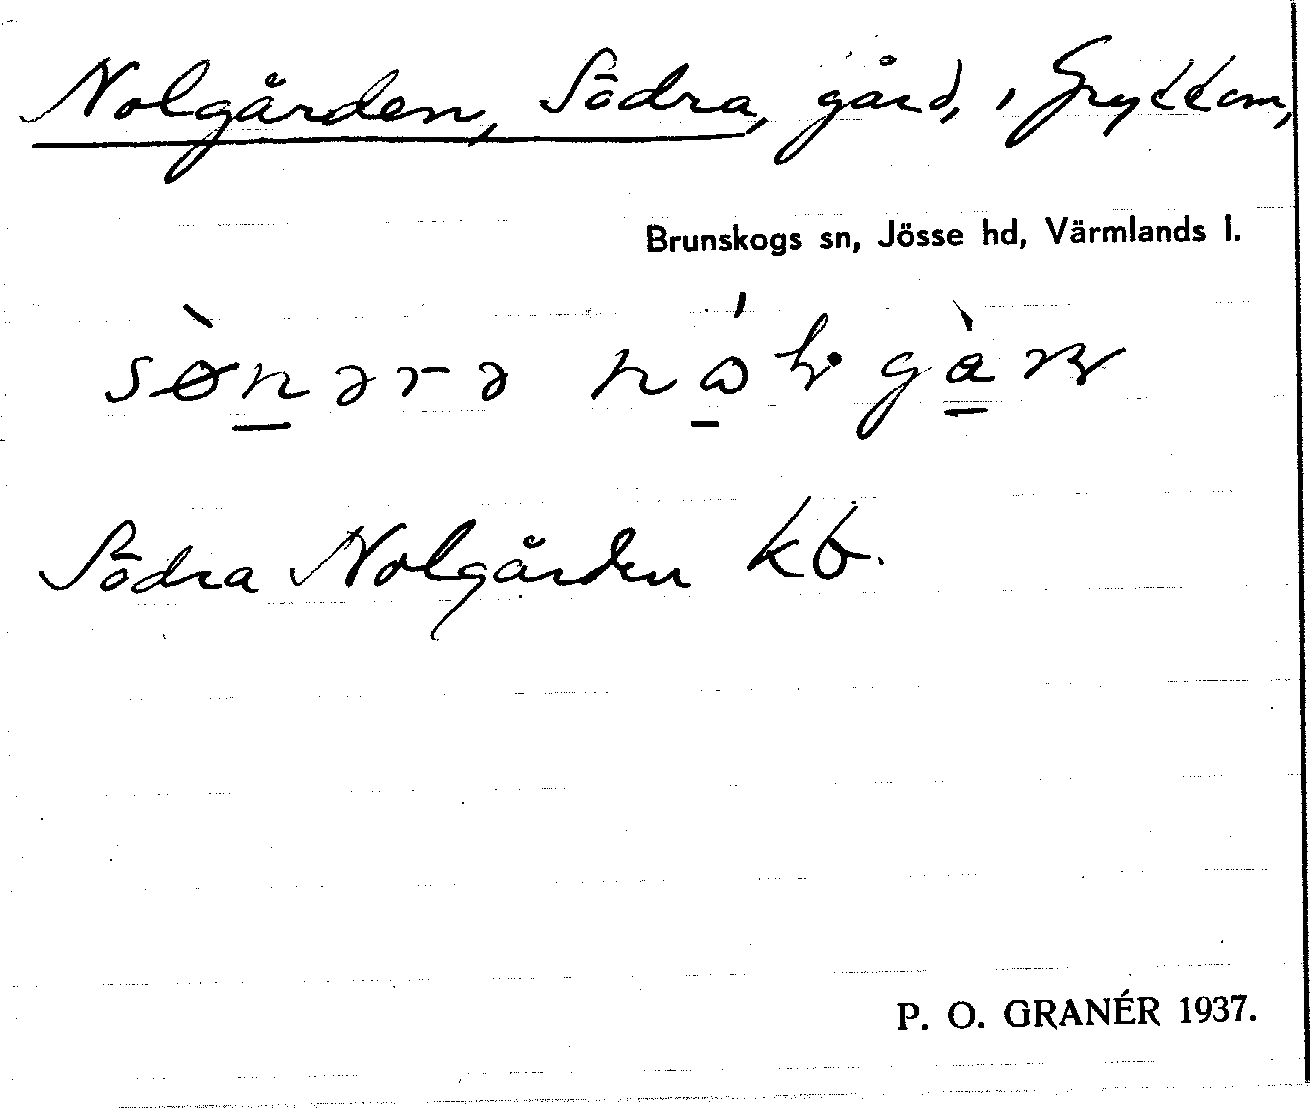 Nolgården, Södra, gård, i Gryttom,
Brunskogs sn, Jösse hd, Värmlands l.
Södra Nolgården kb.
P. O. GRANÉR 1937.